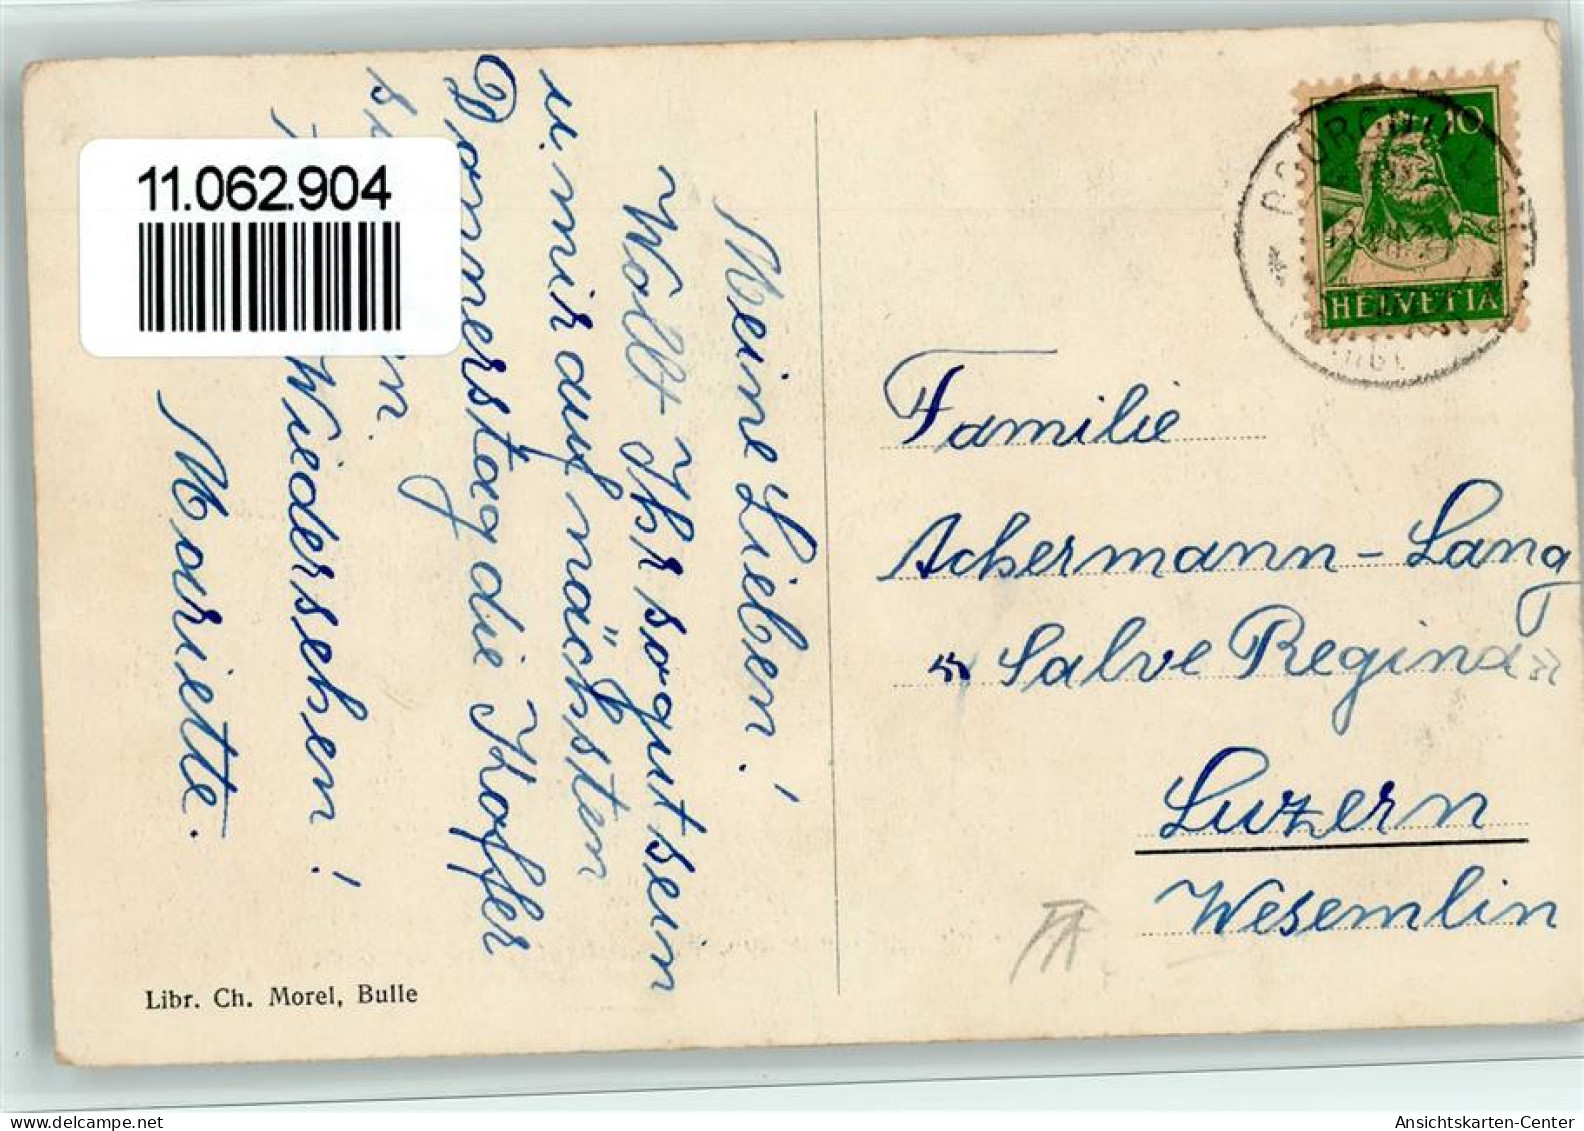 11.062.904
Meine Lieben!
Wollt Ihr so gut sein
u. mir auf nächsten
Donnerstag die Koffer
Wiedersehen!
Mariette.
Libr. Ch. Morel, Bulle
10
HELVETIA
Familie
Achermann-Lang
« Salve Regina »
Luzern
Wesemlin
delcampe.net
Ansichtskarten-Center